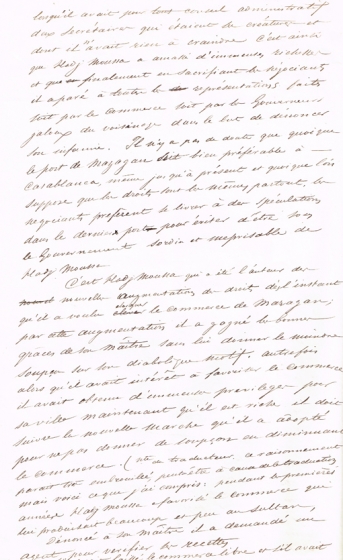 lorsqu'il avait pour tout conseil administratif
deux Secrétaires qui étaient ses créatures et
dont il n'avait rien à craindre. C'est ainsi
que Hadj Moussa a amassé d'immenses richesses
et que finalement en sacrifiant les négociants
il a paré à toutes les représentations faites
soit par le commerce soit par les Gouverneurs
jaloux du voisinage dans le but de dénoncer
son infamie. Il n'y a pas de doute que quoique
le port de Mazagan soit bien préférable à
Casablanca, même jusqu'à présent et quoique l'on
suppose que les droits sont les mêmes partout, les
négociants préfèrent se livrer à des spéculations
dans le dernier port pour éviter d'être sous
le Gouvernement sordide et méprisable de
Hadj Moussa
C'est Hadj Moussa qui a été l'auteur de
nouvelle augmentation de droits
qu'il a voulu le commerce de Mazagan;
par cette augmentation il a gagné les bonnes
grâces de son maître sans lui donner le moindre
soupçon sur son diabolique motif autrefois
alors qu'il avait intérêt à favoriser le commerce
il avait obtenu d'immenses privilèges pour
sa ville maintenant qu'il est riche il doit
suivre la nouvelle marche qu'il a adopté
pour ne pas donner de soupçons en diminuant
le commerce. (note du traducteur, ce raisonnement
paraît embrouillé, peut-être à cause de la traduction
mais voici ce que j'ai compris: pendant les premières
années Hadj Moussa a favorisé le commerce qui
lui produisait beaucoup et peu au sultan,
Dénoncé à son maître il a demandé un
agent pour vérifier les recettes
le commerce libre et s'il avait